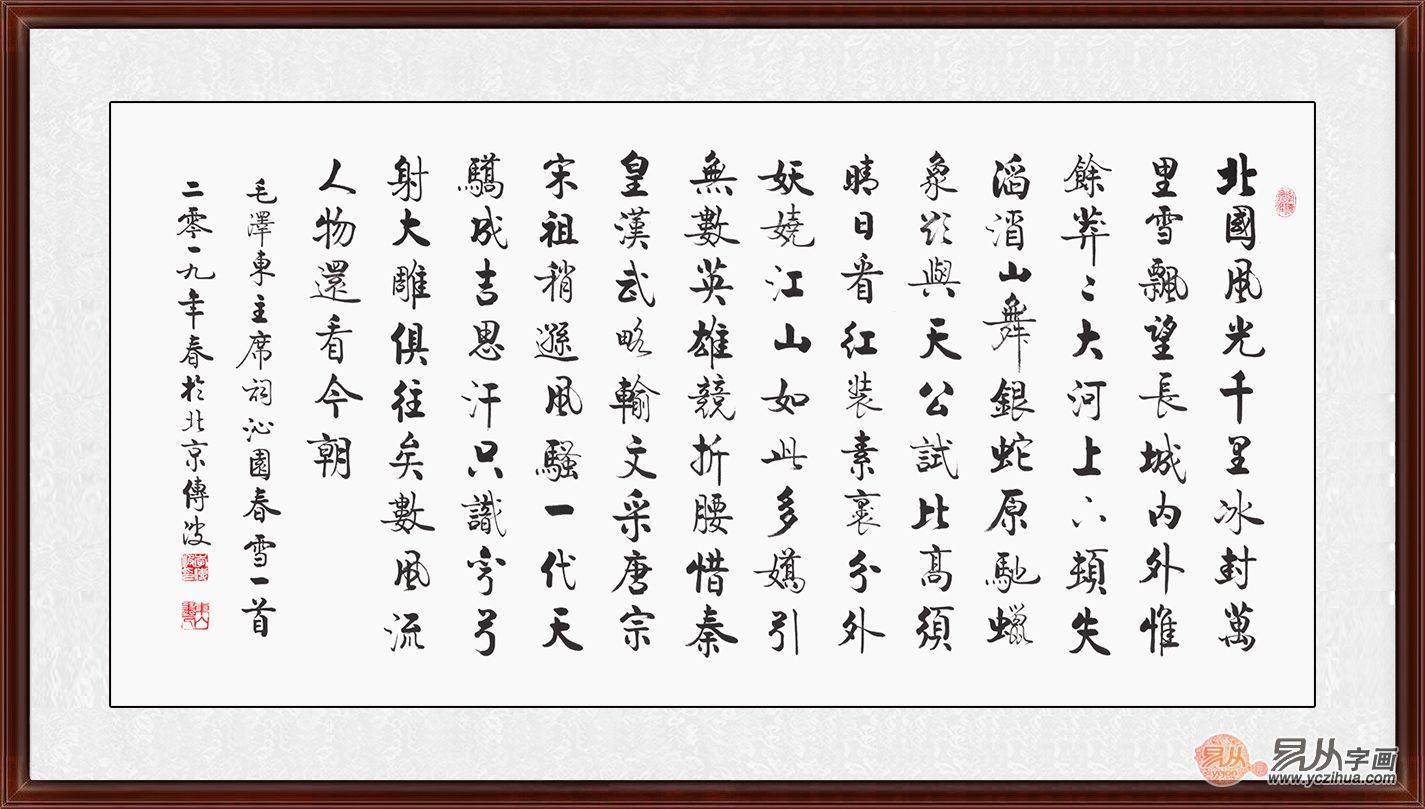 北國風光千里冰封萬
里雪飄望長城內外惟
餘莽〻大河上下頓失
滔滔山舞銀蛇原馳蠟
象欲與天公試比高須
晴日看紅裝素裹分外
妖嬈江山如此多嬌引
無數英雄競折腰惜秦
皇漢武略輸文采唐宗
宋祖稍遜風騷一代天
驕成吉思汗只識彎弓
射大雕俱往矣數風流
人物還看今朝
毛澤東主席詞沁園春雪一首
二零一九年春於北京傳波
易从字画
www.yczihua.com